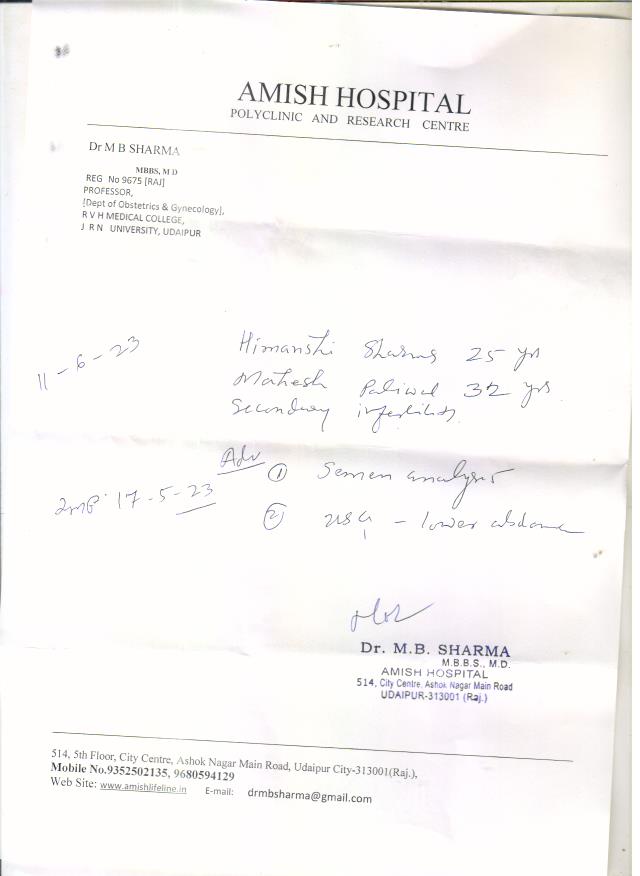 AMISH HOSPITAL
POLYCLINIC AND RESEARCH CENTRE
Dr M B SHARMA
MBBS, M D
REG No 9675 [RAJ]
PROFESSOR,
[Dept of Obstetrics & Gynecology],
R V H MEDICAL COLLEGE,
J R N UNIVERSITY, UDAIPUR
11-6-23
Himanshi Sharma 25 yrs
Mahesh Paliwal 32 yrs
Secondary infertility
Adv
① Semen analysis
LMP 17-5-23
② USG - lower abdomen
Dr. M.B. SHARMA
M.B.B.S., M.D.
AMISH HOSPITAL
514, City Centre, Ashok Nagar Main Road
UDAIPUR-313001 (Raj.)
514, 5th Floor, City Centre, Ashok Nagar Main Road, Udaipur City-313001(Raj.),
Mobile No.9352502135, 9680594129
Web Site: www.amishlifeline.in E-mail: drmbsharma@gmail.com